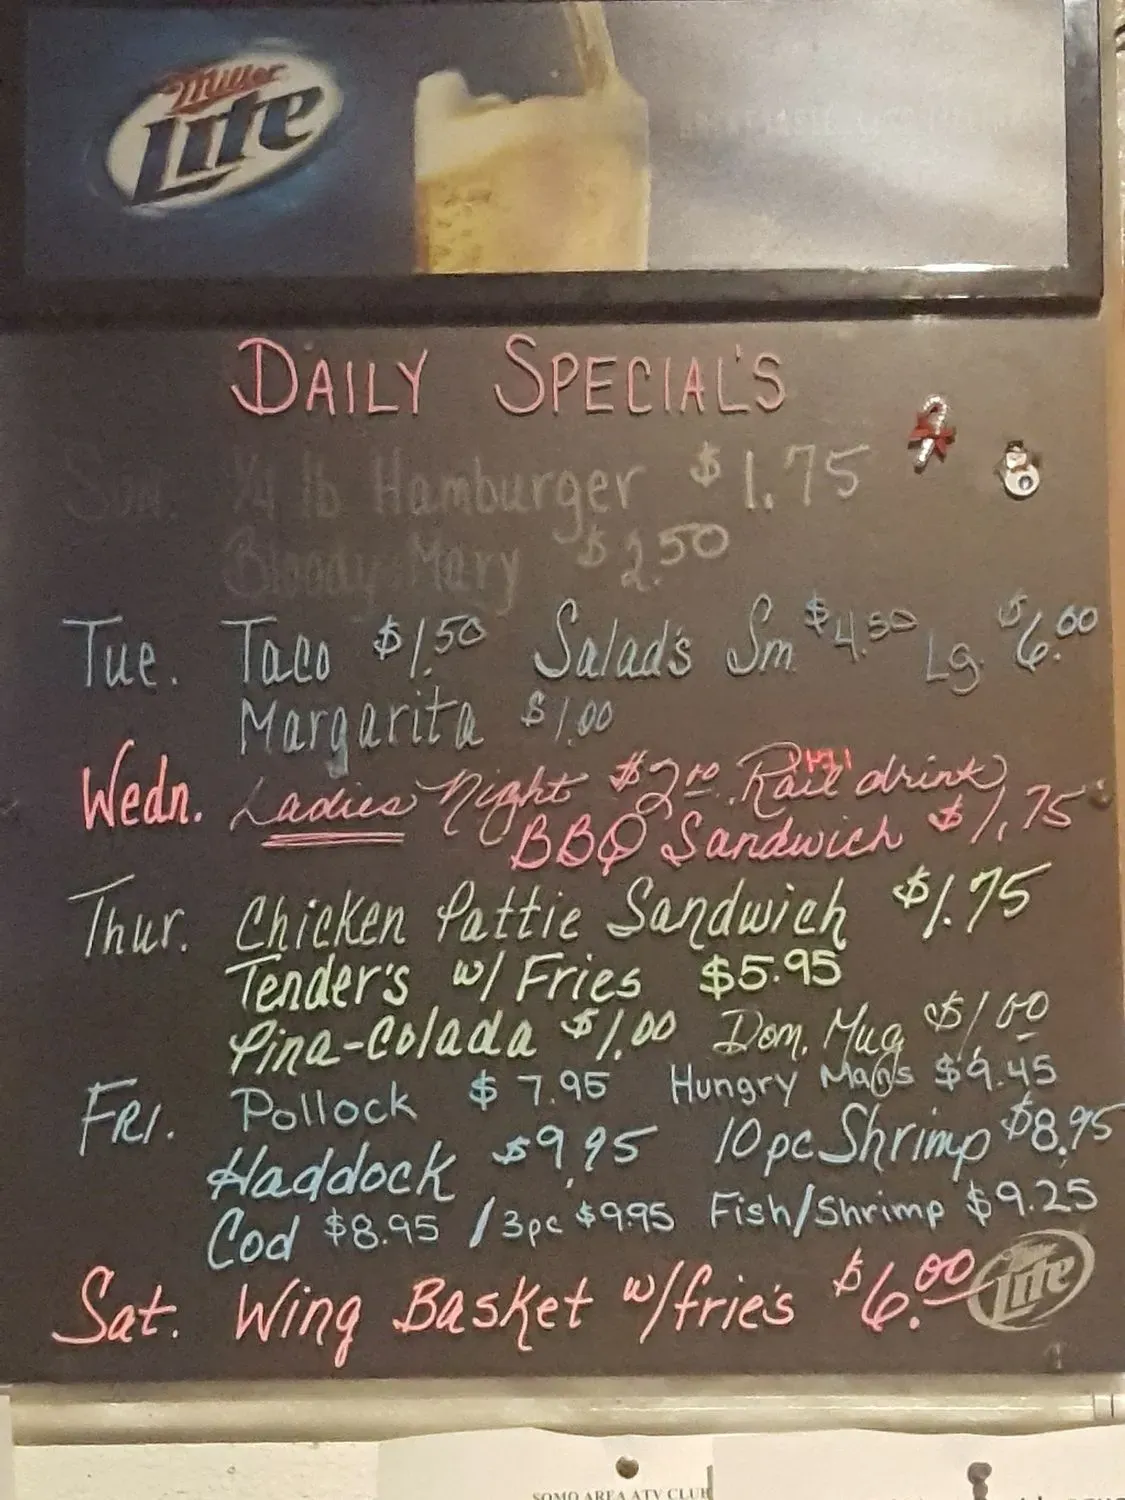 Miller
Lite
DAILY SPECIAL'S
Sun. 1/4 lb Hamburger $1.75
Bloody Mary $2.50
Tue. Taco $1.50 Salad's Sm $4.50 Lg. $6.00
Margarita $1.00
Wedn. Ladies Night $2.00 Rail drink
BBQ Sandwich $1.75
Thur. Chicken Pattie Sandwich $1.75
Tender's w/ Fries $5.95
Pina-Colada $1.00 Dom. Mug $1.00
FRI. Pollock $7.95 Hungry Man's $9.45
Haddock $9.95 10pc Shrimp $8.95
Cod $8.95 / 3pc $9.95 Fish/Shrimp $9.25
Sat. Wing Basket w/frie's $6.00
Lite
SOMO AREA ATV CLUB